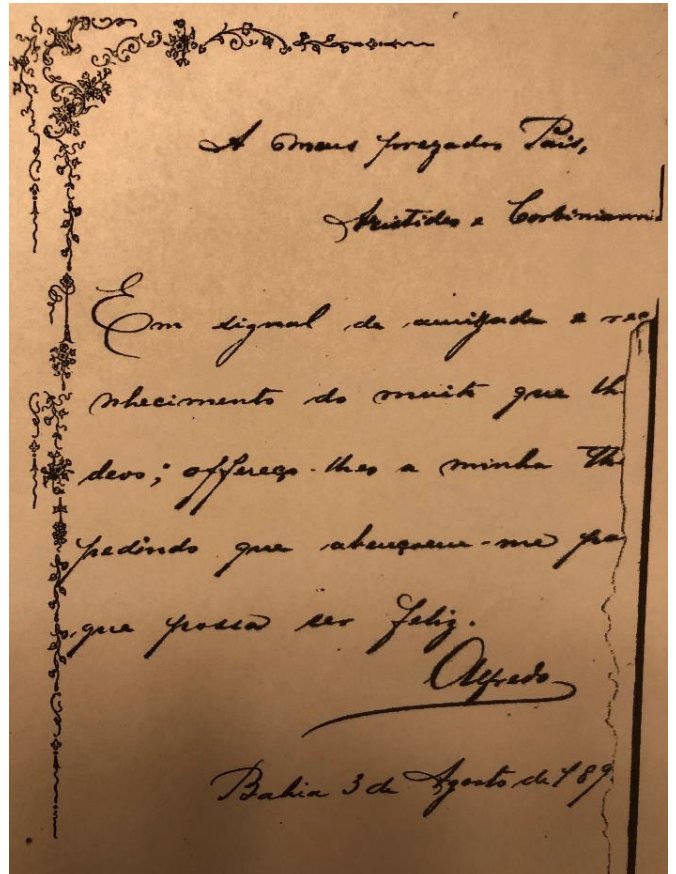 A meus prezados Pais,
Aristides e Corbinianna
Em signal de amizade e reco
nhecimento do muito que lh
devo; offereço-lhes a minha Th
pedindo que abençoem-me pa
que possa ser feliz.
Alfredo
Bahia 3 de Agosto de 189